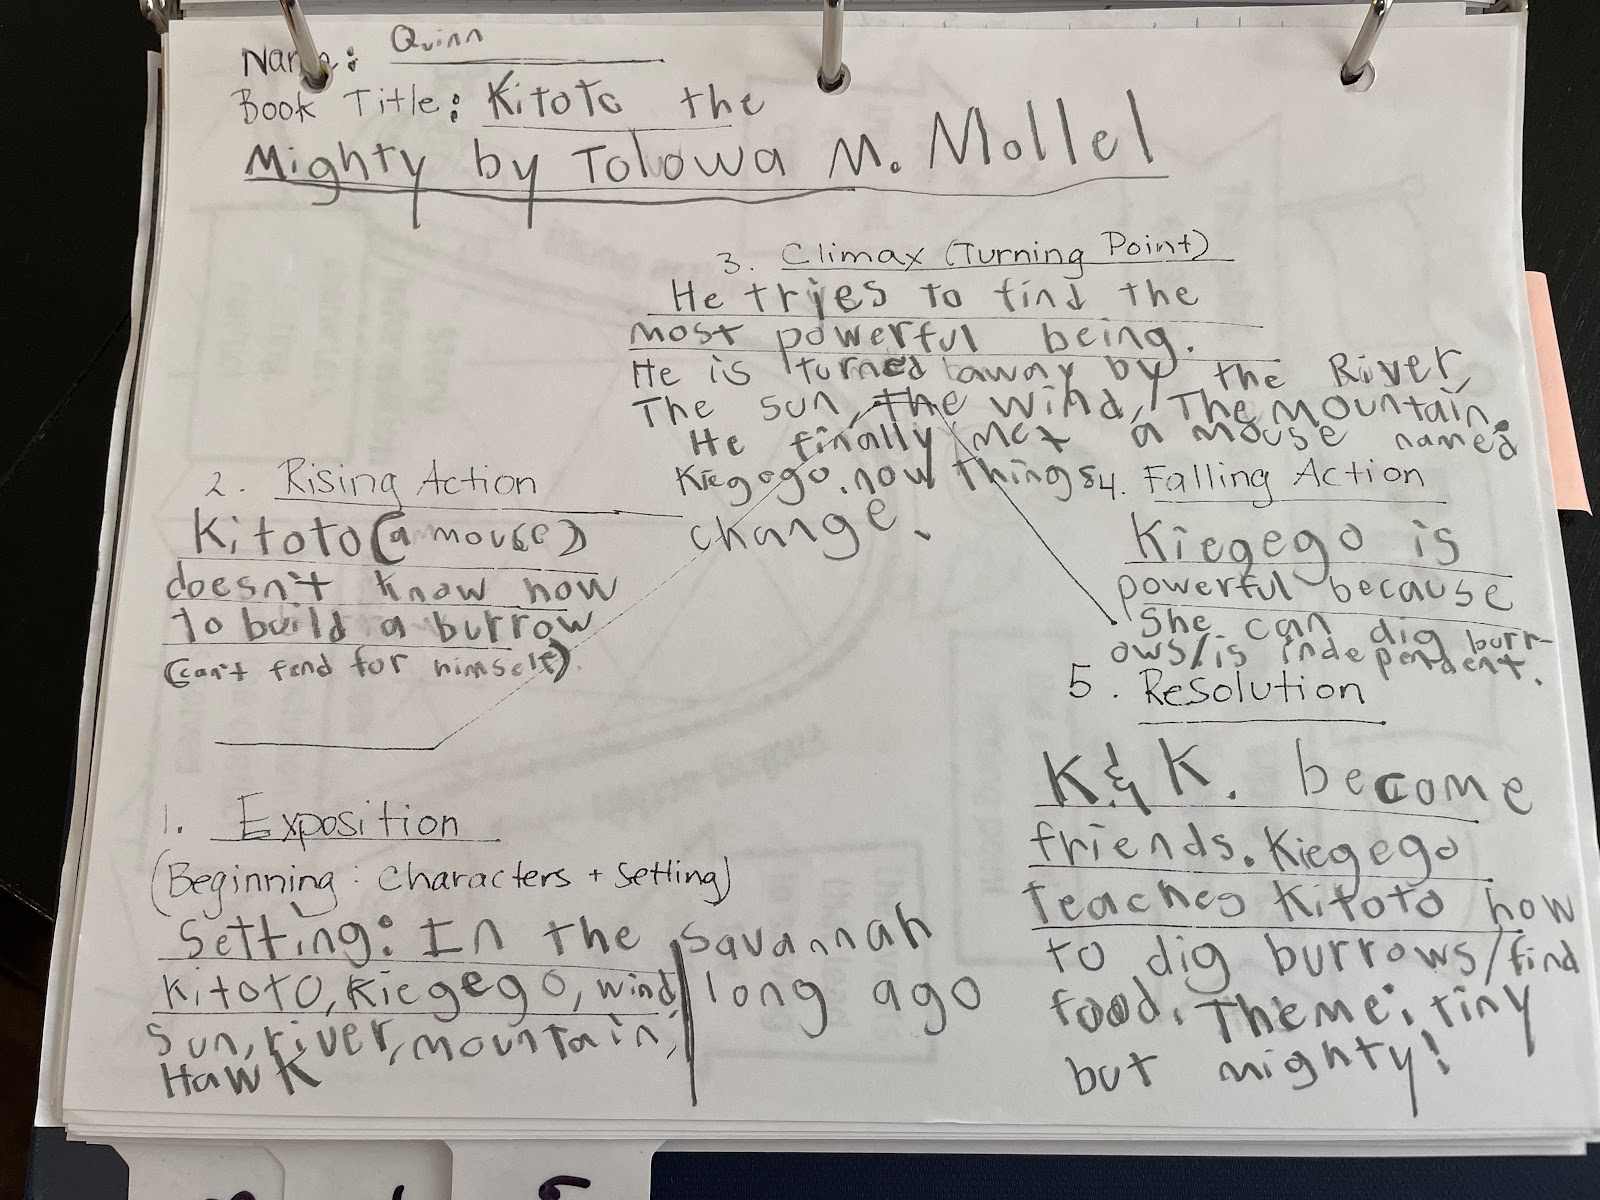 Name: Quinn
Book Title: Kitoto the
Mighty by Tolowa M. Mollel
3. Climax (Turning Point)
He tries to find the
most powerful being.
He is turned away by the River,
The sun, the wind, The mountain.
He finally met a mouse named
Kiegego. now things
change.
2. Rising Action
Kitoto (a mouse)
doesn't know how
to build a burrow
(can't fend for himself).
4. Falling Action
Kiegego is
powerful because
She can dig burr-
ows/is independent.
5. Resolution
K. & K. become
friends. Kiegego
teaches Kitoto how
to dig burrows/find
food. Theme: tiny
but mighty!
1. Exposition
(Beginning: Characters + Setting)
Setting: In the savannah
Kitoto, Kiegego, wind, long ago
Sun, river, mountain,
Hawk